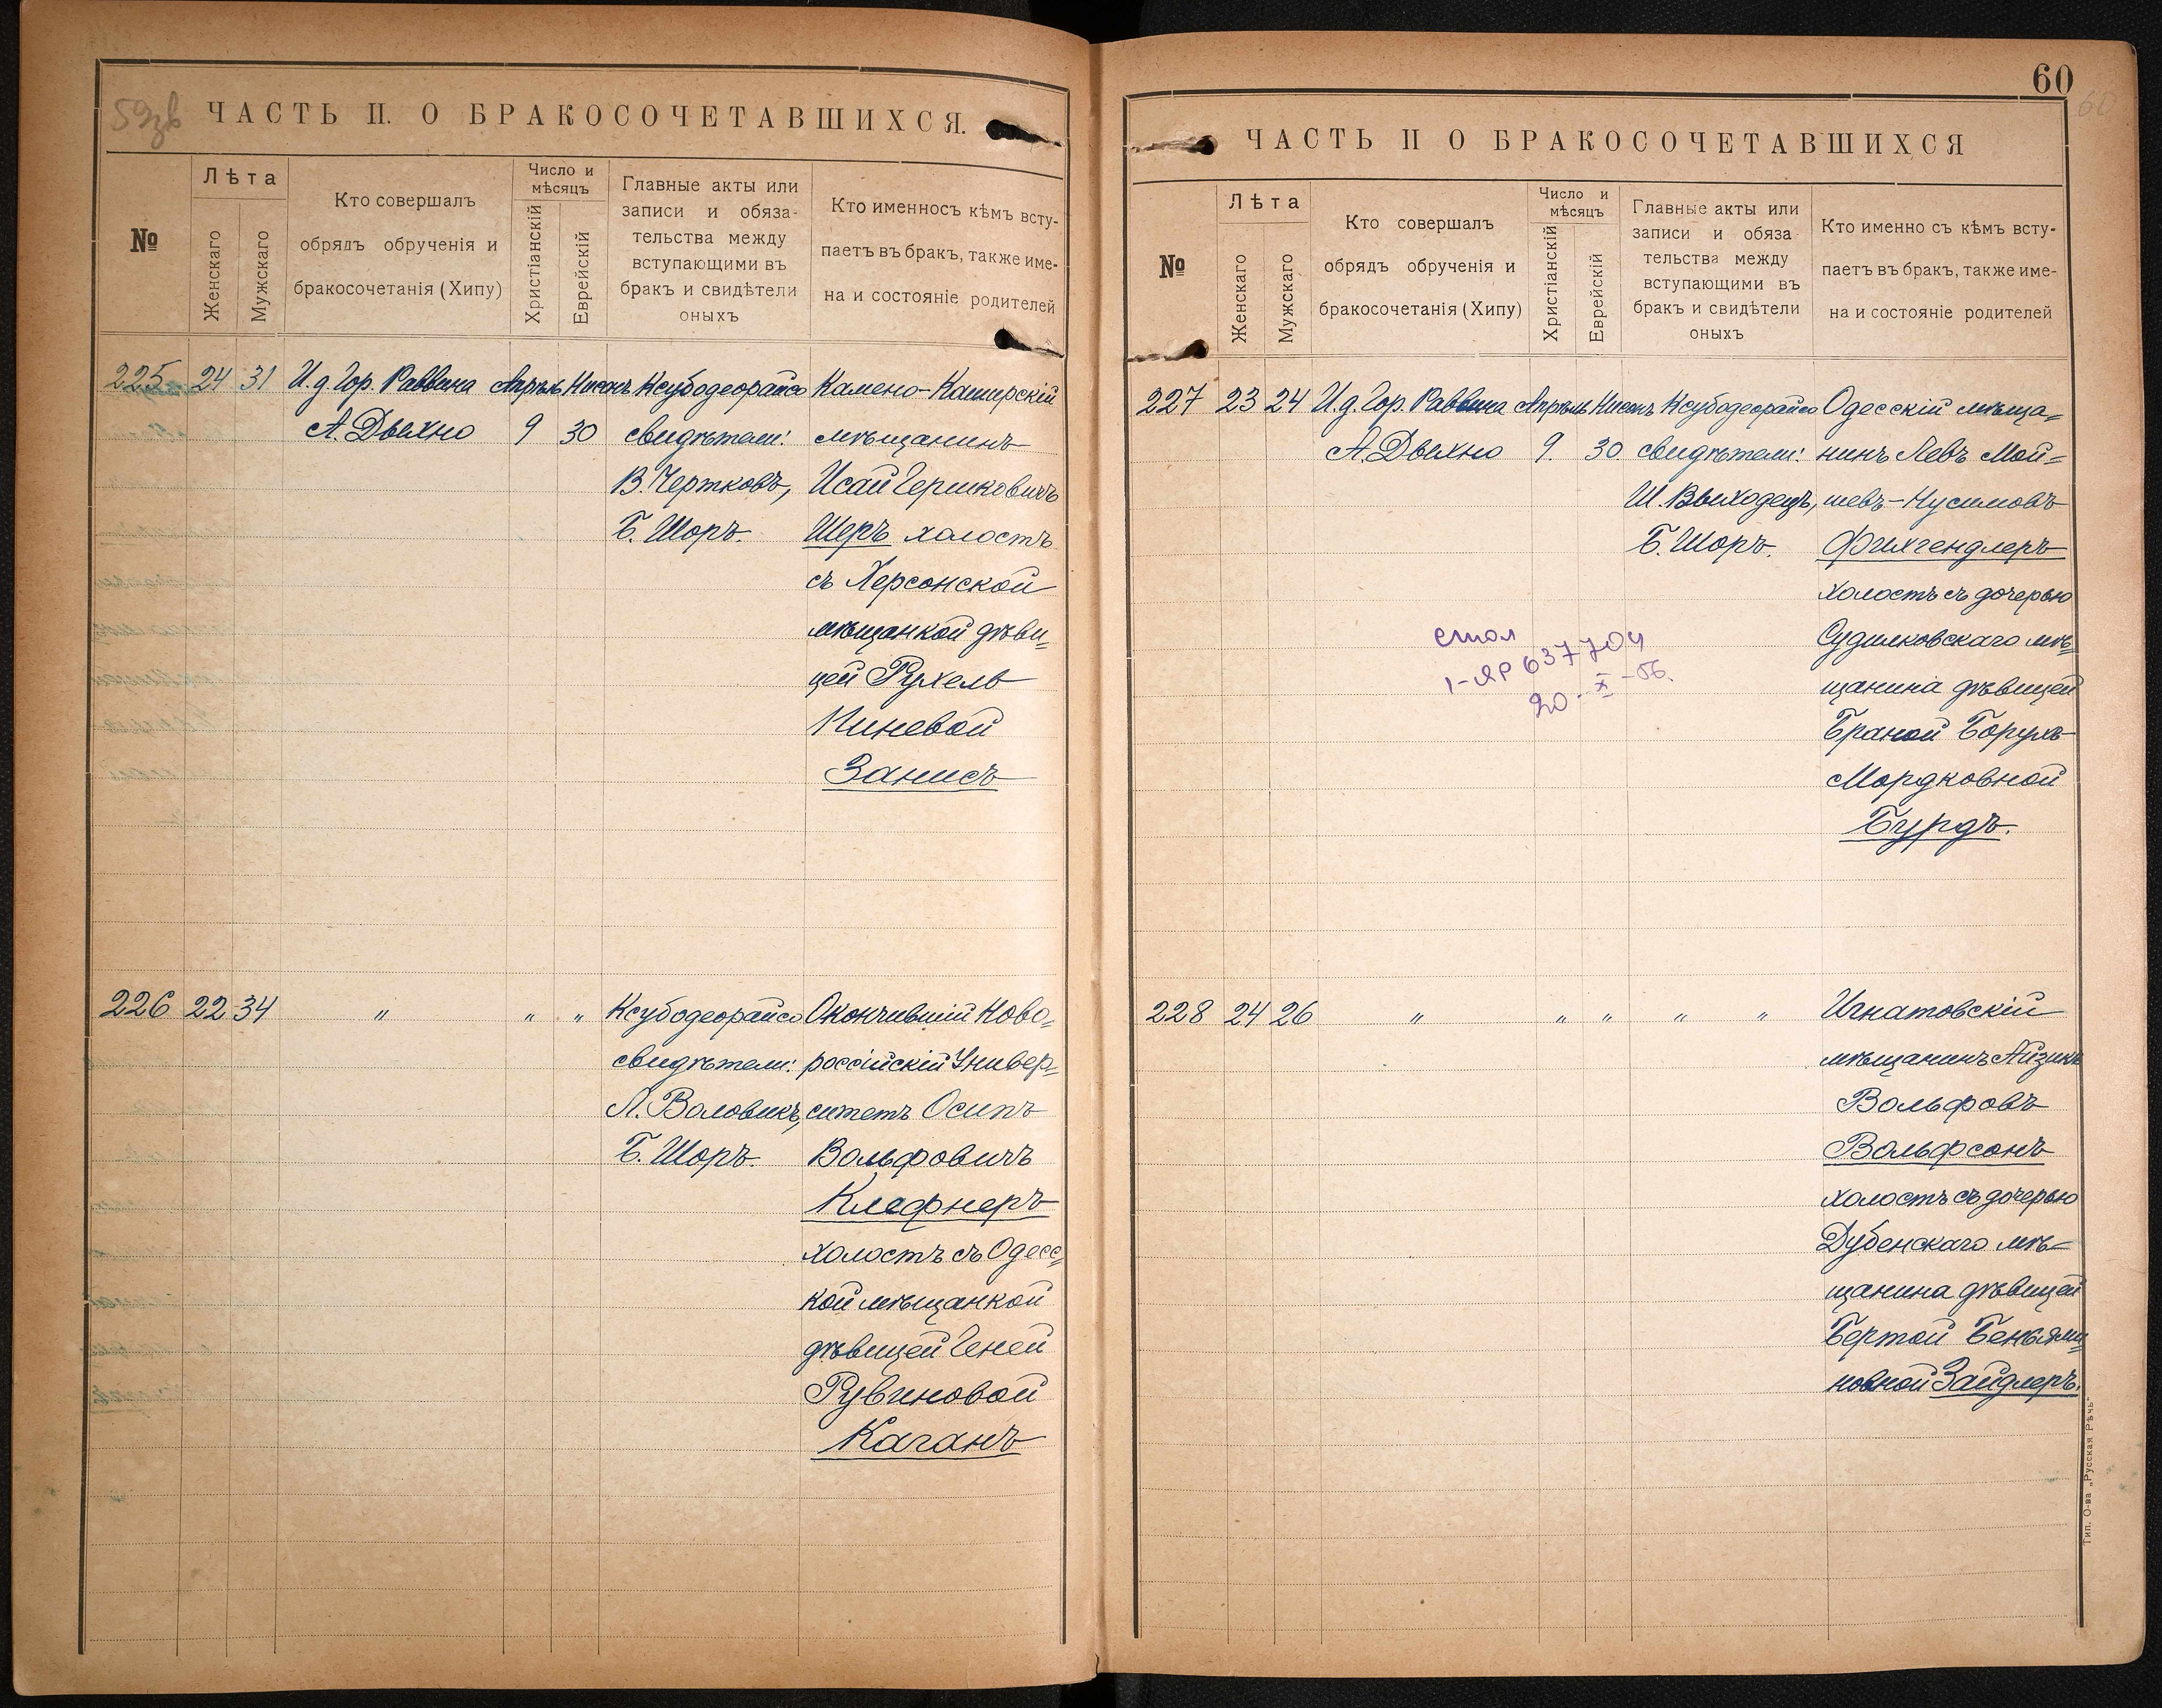 59зв
ЧАСТЬ II. О БРАКОСОЧЕТАВШИХСЯ.
№
Лѣта
Женскаго
Мужскаго
Кто совершалъ
обрядъ обрученія и
бракосочетанія (Хипу)
Число и
мѣсяцъ
Христіанскій
Еврейскій
Главные акты или
записи и обяза-
тельства между
вступающими въ
бракъ и свидѣтели
оныхъ
Кто именносъ кѣмъ всту-
паетъ въ бракъ, также име-
на и состояніе родителей
225 24 31 И.д. Гор. Раввина Апрѣль Нисонъ Ксубодеорайсо Камено-Каширскій
А. Дыхно 9 30 свидѣтели: мѣщанинъ
В. Чертковъ, Исай Гершковичъ
Б. Шоръ. Шеръ холостъ
съ Херсонской
мѣщанкой дѣви-
цей Рухель
Пиневой
Занисъ
226 22 34 " " " Ксубодеорайсо Окончившій Ново-
свидѣтели: россійскій Универ-
Л. Воловикъ, ситетъ Осипъ
Б. Шоръ. Вольфовичъ
Клефнеръ
холостъ съ Одесс-
кой мѣщанкой
дѣвицей Геней
Рувиновой
Каганъ
60
60
ЧАСТЬ II О БРАКОСОЧЕТАВШИХСЯ
№
Лѣта
Женскаго
Мужскаго
Кто совершалъ
обрядъ обрученія и
бракосочетанія (Хипу)
Число и
мѣсяцъ
Христіанскій
Еврейскій
Главные акты или
записи и обяза
тельства между
вступающими въ
бракъ и свидѣтели
оныхъ
Кто именно съ кѣмъ всту-
паетъ въ бракъ, также име-
на и состояніе родителей
227 23 24 И.д. Гор. Раввина Апрѣль Нисонъ Ксубодеорайсо Одесскій мѣща-
А. Дыхно 9. 30 свидѣтели: нинъ Левъ Мой-
Ш. Выходецъ, шевъ-Нусимовъ
Б. Шоръ. Фихгендлеръ
холостъ съ дочерью
Судилковскаго мѣ-
щанина дѣвицей
Браной Борухъ
Мордковной
Бурдъ.
стол
1-ЯР 637704
20-X-56.
228 24 26 " " " " " Игнатовскій
мѣщанинъ Айзикъ
Вольфовъ
Вольфсонъ
холостъ съ дочерью
Дубенскаго мѣ-
щанина дѣвицей
Бертой Беньями-
новной Зайдлеръ.
Тип. О-ва „Русская Рѣчь"